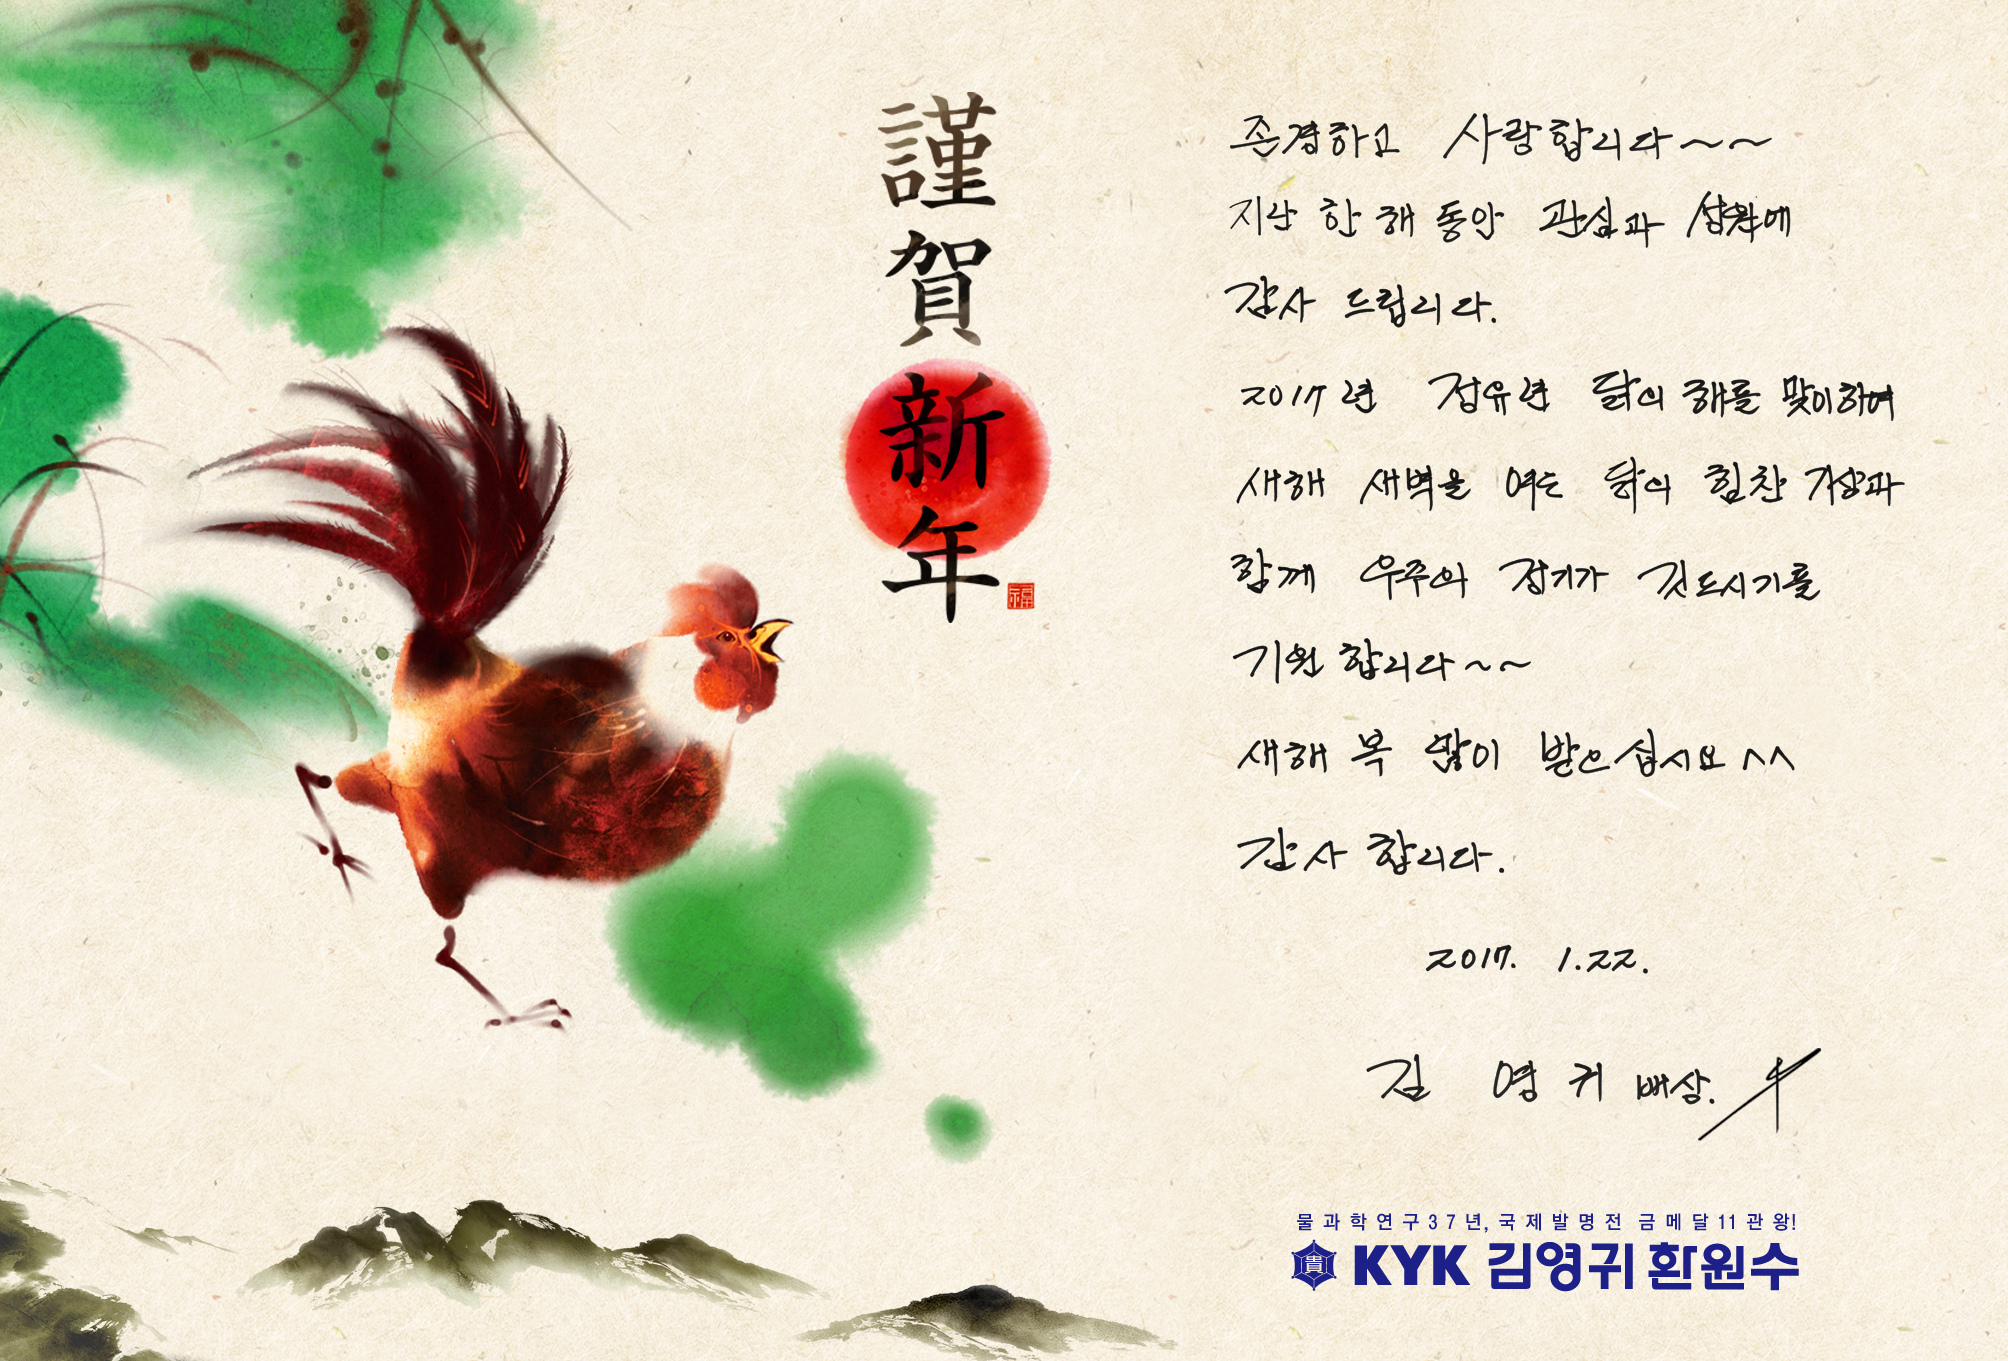 謹賀新年
福
존경하고 사랑합니다~~
지난 한 해 동안 관심과 성원에
감사 드립니다.
2017년 정유년 닭의 해를 맞이하여
새해 새벽을 여는 닭의 힘찬 기상과
함께 우주의 정기가 깃드시기를
기원합니다~~
새해 복 많이 받으십시요 ^^
감사합니다.
2017. 1.22.
김 영 귀 배상.
물과학연구37년, 국제발명전 금메달11관왕!
貴 KYK 김영귀환원수